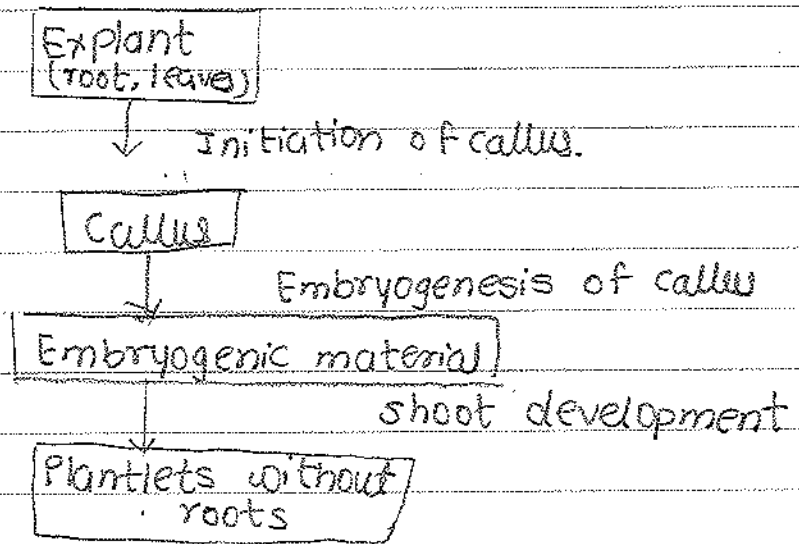 Explant
(root, leaves)
Initiation of callus.
Callus
Embryogenesis of callus
Embryogenic material
shoot development
Plantlets without
roots